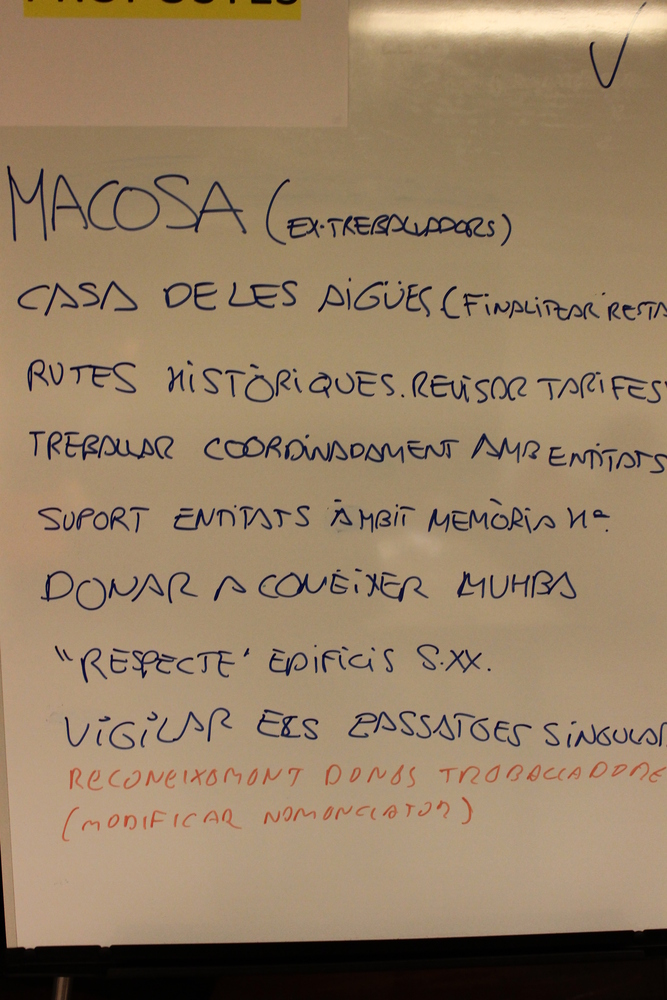 PROPOSTES
MACOSA (EX-TREBALLADORS)
CASA DE LES AIGÜES (FINALITZAR RESTA
RUTES HISTÒRIQUES. REVISAR TARIFES
TREBALLAR COORDINADAMENT AMB ENTITATS
SUPORT ENTITATS ÀMBIT MEMÒRIA Hª
DONAR A CONÈIXER MUHBA
"RESPECTE" EDIFICIS S.XX.
VIGILAR ELS PASSATGES SINGULAR
RECONEIXEMENT DONES TREBALLADORE
(MODIFICAR NOMENCLATOR)